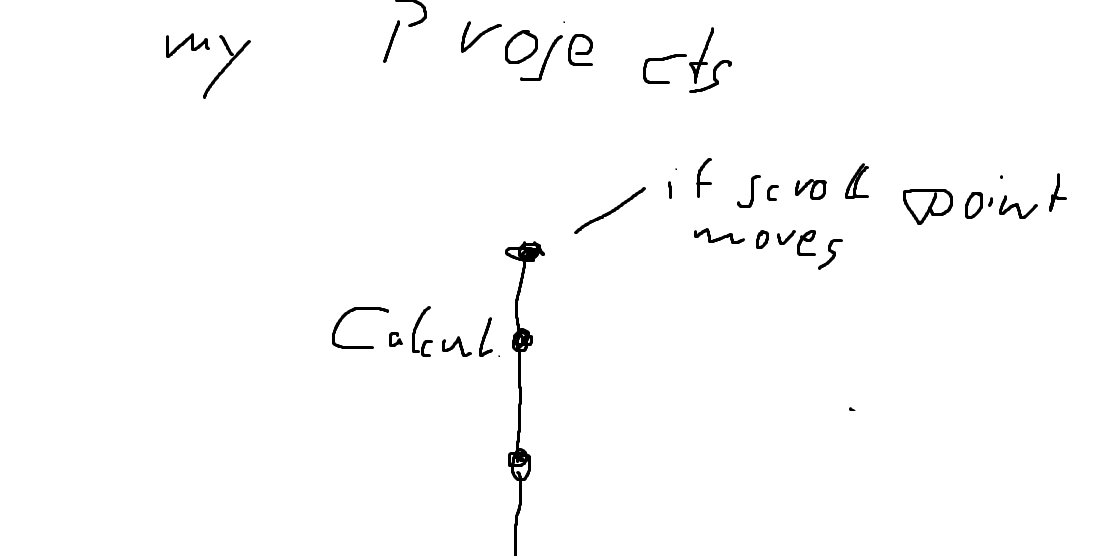 my Projects
if scroll point
moves
Calcul.